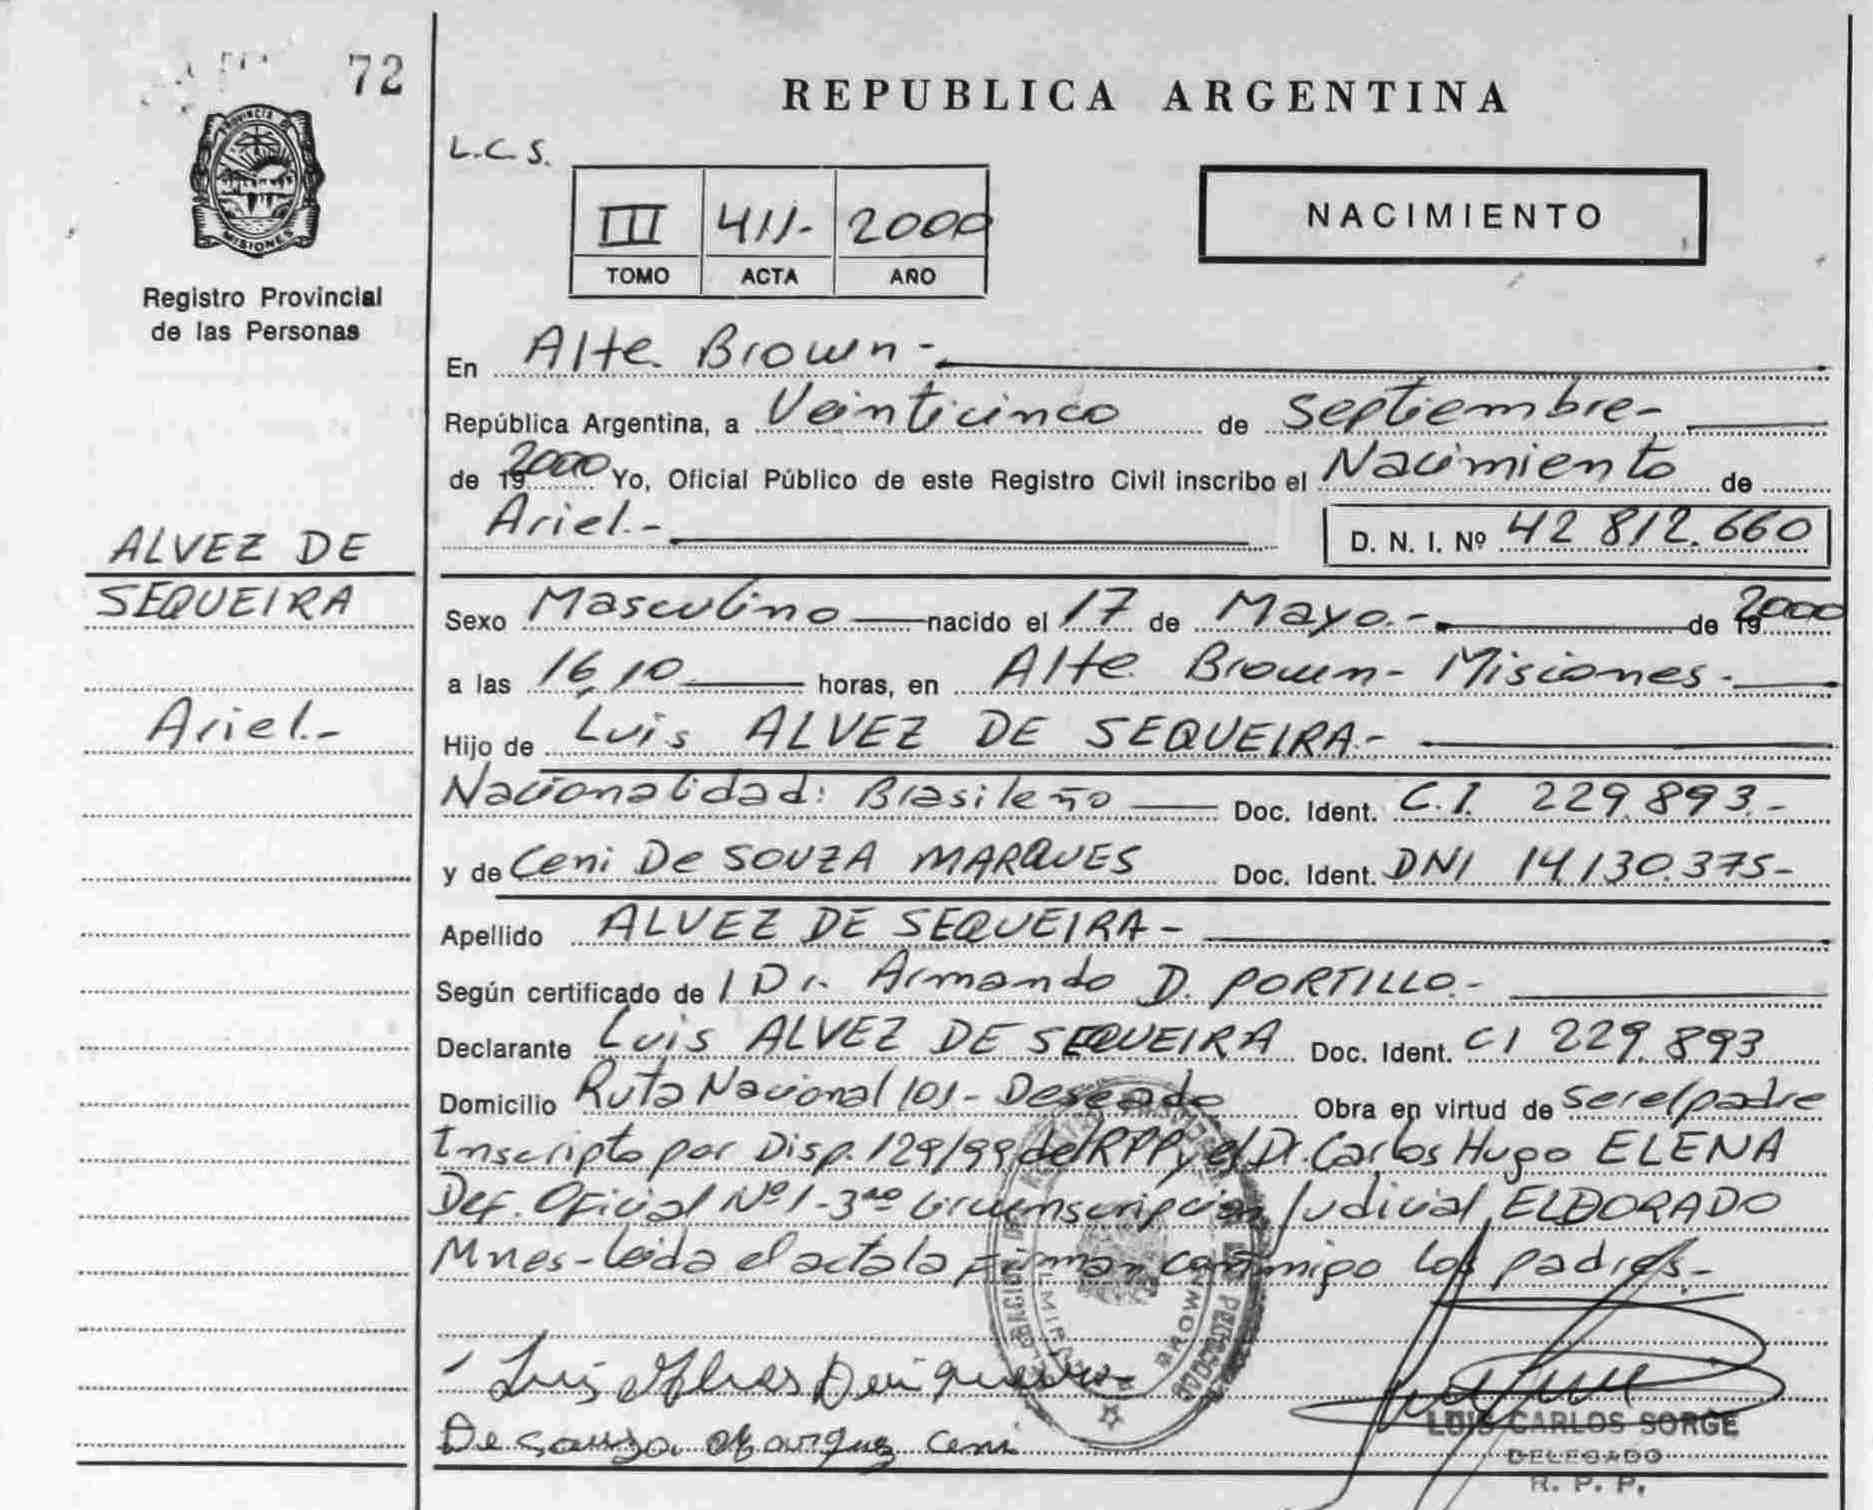 72
PROVINCIA DE
MISIONES
Registro Provincial
de las Personas
ALVEZ DE
SEQUEIRA
Ariel.-
REPUBLICA ARGENTINA
L.C.S.
III 411- 2000
TOMO ACTA AÑO
NACIMIENTO
En Alte. Brown-
República Argentina, a Veinticinco de Septiembre-
de 19 2000 Yo, Oficial Público de este Registro Civil inscribo el Nacimiento de
Ariel.- D. N. I. Nº 42 812.660
Sexo Masculino nacido el 17 de Mayo.- de 19 2000
a las 16,10 horas, en Alte. Brown- Misiones.-
Hijo de Luis ALVEZ DE SEQUEIRA-
Nacionalidad: Brasileño Doc. Ident. C.I. 229.893.-
y de Ceni De SOUZA MARQUES Doc. Ident. DNI 14.130.375-
Apellido ALVEZ DE SEQUEIRA-
Según certificado de 1 Dr. Armando D. PORTILLO.-
Declarante Luis ALVEZ DE SEQUEIRA Doc. Ident. CI 229.893
Domicilio Ruta Nacional 101- Deseado Obra en virtud de ser el padre
Inscripto por Disp. 129/99 del RPP y el Dr. Carlos Hugo ELENA
Def. Oficial Nº1-3ra Circunscripcion Judicial ELDORADO
Mnes- leida el acta la firman conmigo los padres-
Luis Alves De
De Souza Marquez Ceni
BROWN
LUIS CARLOS SORGE
DELEGADO
R. P. P.